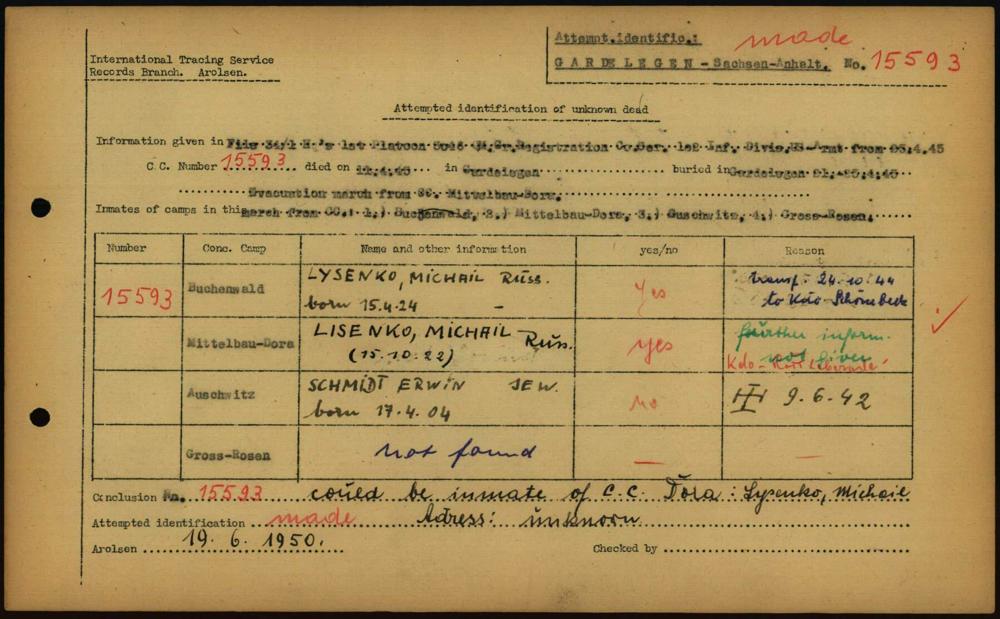 International Tracing Service
Records Branch. Arolsen.
Attempt.identific.: made
GARDELEGEN - Sachsen-Anhalt. No. 15593
Attempted identification of unknown dead
Information given in File 34/1 H.'s 1st Platoon Gr.Registration Co.Ser. 102 Inf. Divis. from 25.4.45
C.C. Number 15593 died on in Gardelegen buried in Gardelegen 21.-25.4.45
Evacuation march from CC. Mittelbau-Dora.
Inmates of camps in this march from CC.: 1.) Buchenwald, 2.) Mittelbau-Dora, 3.) Auschwitz, 4.) Gross-Rosen.
Number Conc. Camp Name and other information yes/no Reason
15593 Buchenwald LYSENKO, MICHAIL Russ. born 15.4.24 - yes transf. 24.10.44 to Kdo Schönebeck
Mittelbau-Dora LISENKO, MICHAIL Rus. (15.10.22) yes further inform. not given Kdo-
Auschwitz SCHMIDT ERWIN JEW. born 17.4.04 no 9.6.42
Gross-Rosen not found — —
Conclusion No. 15593 could be inmate of C.C. Dora: Lysenko, Michail
Attempted identification made Adress: unknorn
Arolsen 19. 6. 1950. Checked by